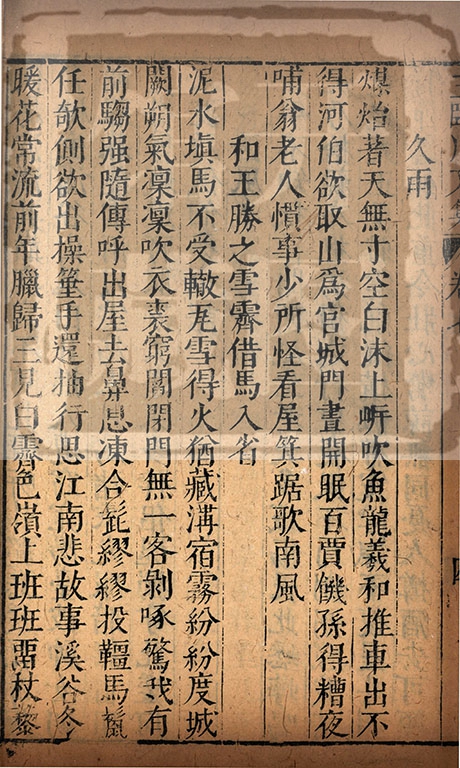 久雨
煤炲著天無寸空白沫上㪁吹魚龍羲和推車出不
得河伯欲取山爲官城門晝開眠百賈饑孫得糟夜
哺翁老人慣事少所怪看屋箕踞歌南風
和王勝之雪霽借馬入省
泥水塡馬不受轍瓦雪得火猶藏溝宿霧紛紛度城
闕朔氣凜凜吹衣裘窮閻閉門無一客剝啄驚我有
前騶强隨傳呼出屋去鼻息凍合髭繆繆投韁馬
任欹側欲出操箠手還抽行思江南悲故事溪谷冬
暖花常流前年臘歸三見白霽色嶺上班班畱杖藜